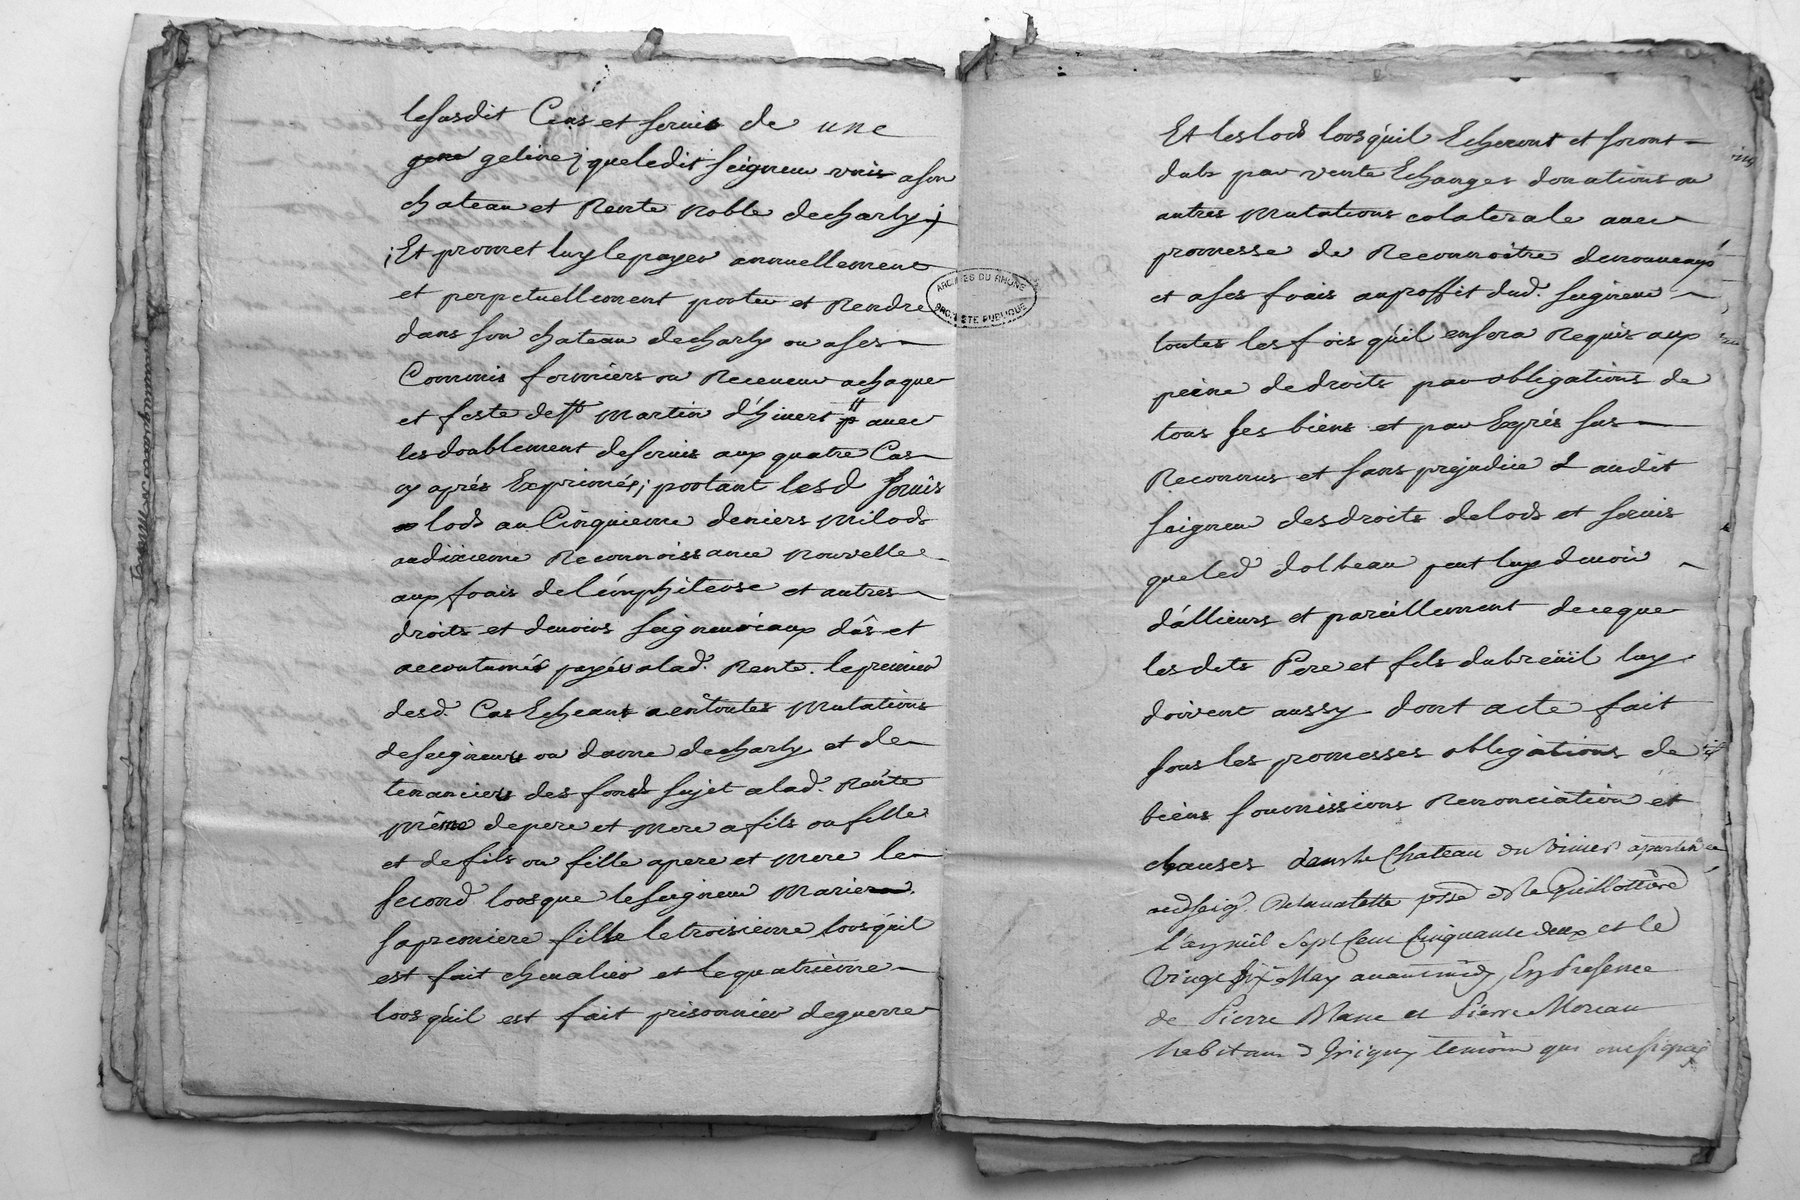 lesusdit Cens et servis de une
geline ; queledit seigneur unis a son
chateau et Rente Noble decharly ;
; Et promet luy le payer annuellement
et perpetuellement porter et Rendre
dans son chateau decharly ou a ses
Commis fermiers ou Receveur a chaque
et feste de St Martin d'hivert avec
les doublement de servis aux quatre Cas
cy aprés Exprimés ; portant lesd servis
lods au Cinquieme deniers milods
audixieme Reconnoissance Nouvelle
aux frais de l'émphiteose et autres
droits et devoirs seigneuriaux dûs et
accoutumés payés a lad. Rente. le premier
desd. Cas Echeant a en toutes Mutations
deseigneurs ou dame decharly et de
tenanciers des fonds sujet a lad. Rente
même depere et mere a fils ou fille
et de fils ou fille a pere et mere le
second lorsque le seigneur Marie
sa premiere fille le troisieme lorsqu'il
est fait chevalier et le quatrieme
lorsqu'il est fait prisonnier deguerre
ARCHIVES DU RHÔNE
Et les lods lorsquil Echeront et seront
dubs par vente Echanges donations ou
autres Mutations colaterale avec
promesse de Reconnoitre denouveaux
et a ses frais auproffit dud. seigneur
toutes les fois qu'il en sera Requis aux
peine dedroits par obligations de
tous ses biens et par Exprés sus
Reconnus et sans prejudice audit
seigneur desdroits delods et servis
queled dolbeau peut luy devoir
d'allieurs et pareillement de ce que
les dits Pere et fils dubreüil luy
doivent aussy dont acte fait
sous les promesses obligations de
biens soumissions Renonciation et
clauses dans le Chateau du Vivier apartenance
audseig. Delavalette psse de la Guillottiere
L'an mil Sept Cent Cinquante deux et le
Vingt six May avant midy En Presence
de Pierre Mane et Pierre Moreau
habitans d Grigny temoin qui ont signé